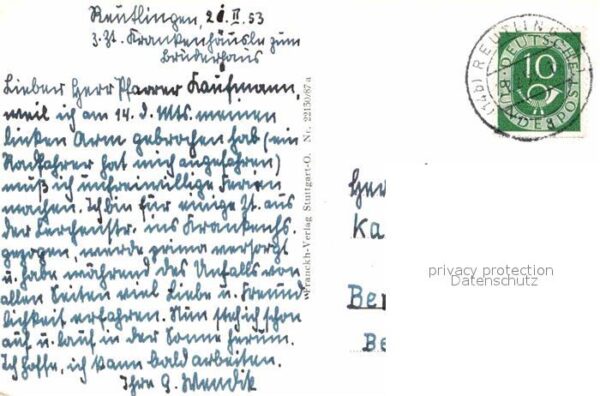 Reutlingen, 21.II.53
z.Zt. Krankenhäusle zum
Bruderhaus
Lieber Herr Pfarrer Kaufmann,
weil ich am 14. d. Mts. meinen
linken Arm gebrochen hab (ein
Radfahrer hat mich angefahren)
muß ich unfreiwillige Ferien
machen. Ich bin für einige Zt. aus
der Lerchenstr. ins Krankenhs.
gezogen, werde prima versorgt
u. habe während des Unfalls von
allen Seiten viel Liebe u. Freund
lichkeit erfahren. Nun steh ich schon
auf u. lauf in der Sonne herum.
Ich hoffe, ich kann bald arbeiten.
Ihre G. Wendik
Franckh-Verlag Stuttgart-O. Nr. 22150/87 a
(14b) REUTLINGEN
DEUTSCHE
10
BUNDESPOST
Ka
privacy protection
Datenschutz
Be
Be